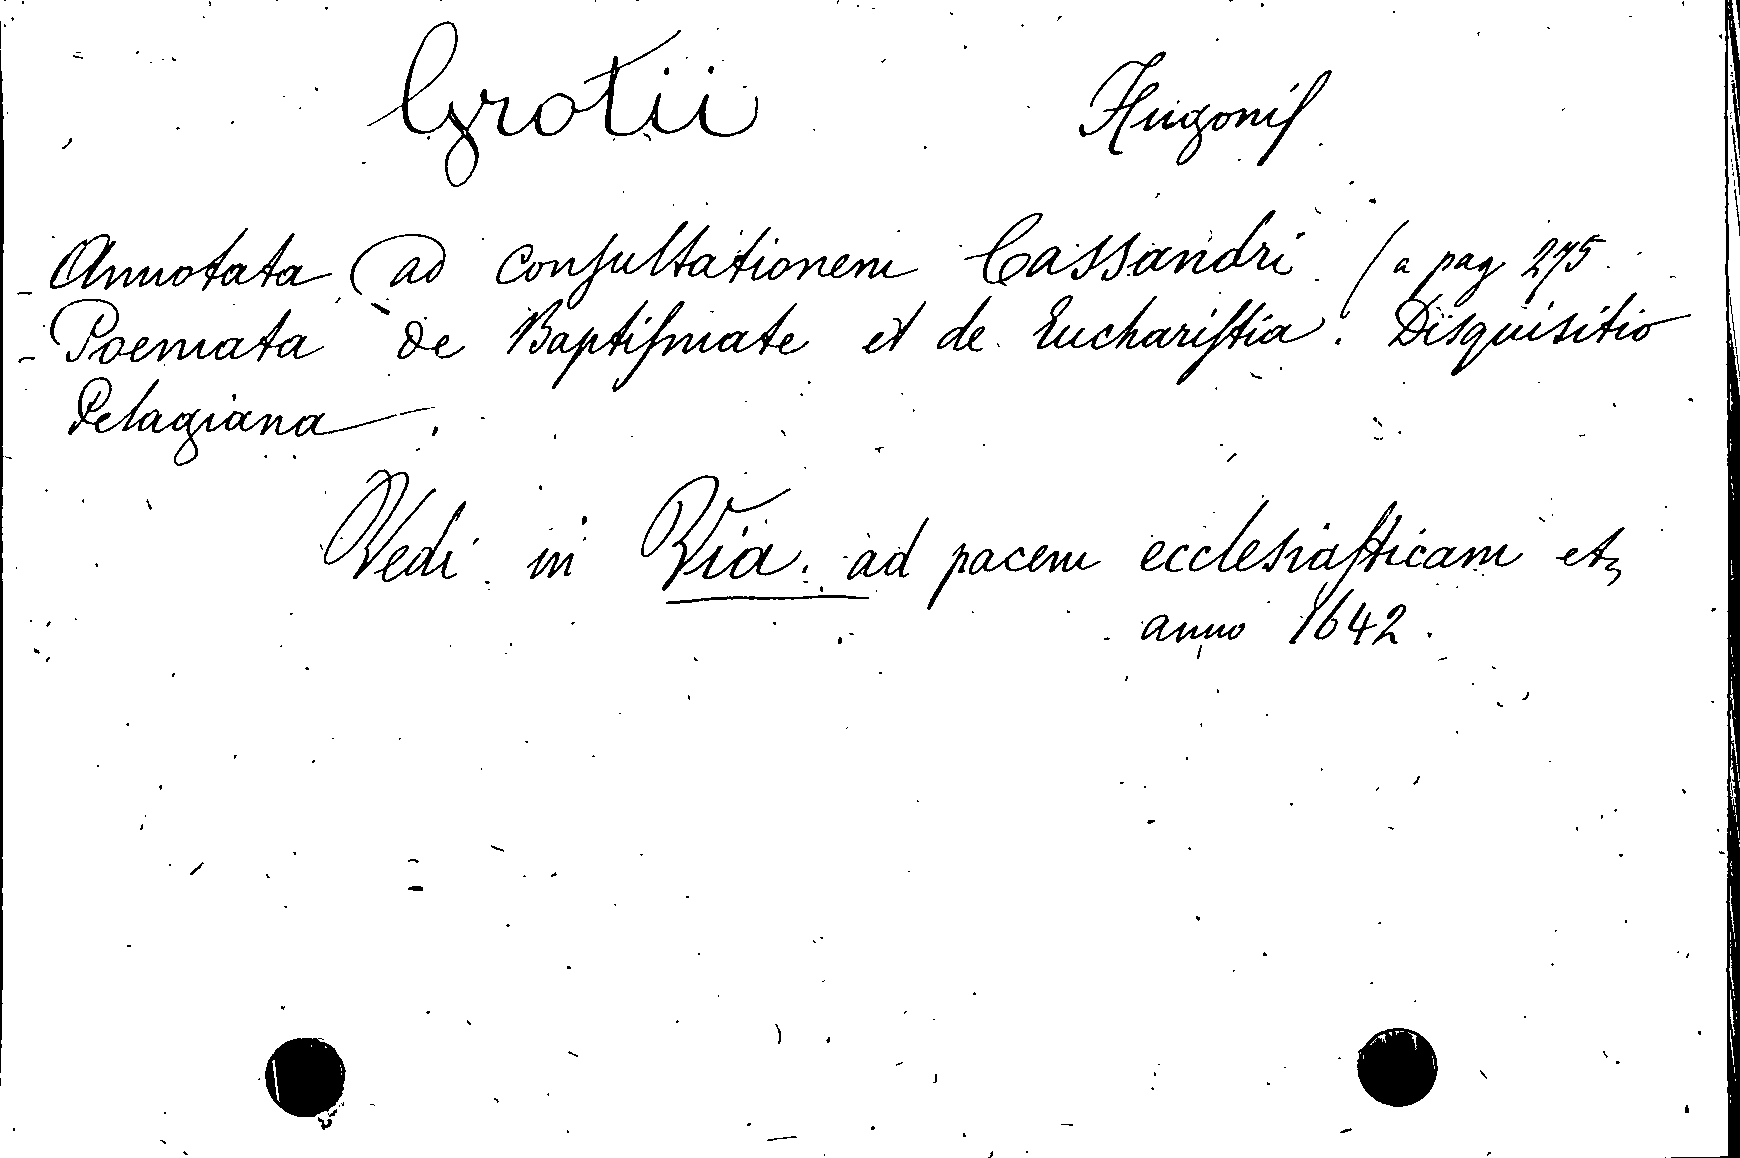 Grotii Hugonis
- Annotata ad consultationem Cassandri (a pag 275
- Poemata de Baptismate et de Eucharistia. Disquisitio
Pelagiana.
Vedi in Via ad pacem ecclesiasticam etc
anno 1642.